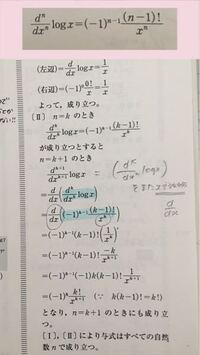 d^n/dx^n log x = (-1)^{n-1} (n-1)!/x^n
(左辺) = d/dx log x = 1/x
(右辺) = (-1)^0 0!/x = 1/x
よって，成り立つ。
〔Ⅱ〕 n=k のとき
d^k/dx^k log x = (-1)^{k-1} (k-1)!/x^k
が成り立つとすると
n=k+1 のとき
d^{k+1}/dx^{k+1} log x = (d^k/dx^k log x)
= d/dx (d^k/dx^k log x)
d/dx
= d/dx {(-1)^{k-1} (k-1)!/x^k}
= (-1)^{k-1} (k-1)! (1/x^k)'
= (-1)^{k-1} (k-1)! -k/x^{k+1}
= (-1)^k (-1)k(k-1)! 1/x^{k+1}
= (-1)^k k!/x^{k+1} (∵ k(k-1)!=k!)
となり，n=k+1 のときにも成り立つ。
〔Ⅰ〕，〔Ⅱ〕より与式はすべての自然
数 n で成り立つ。